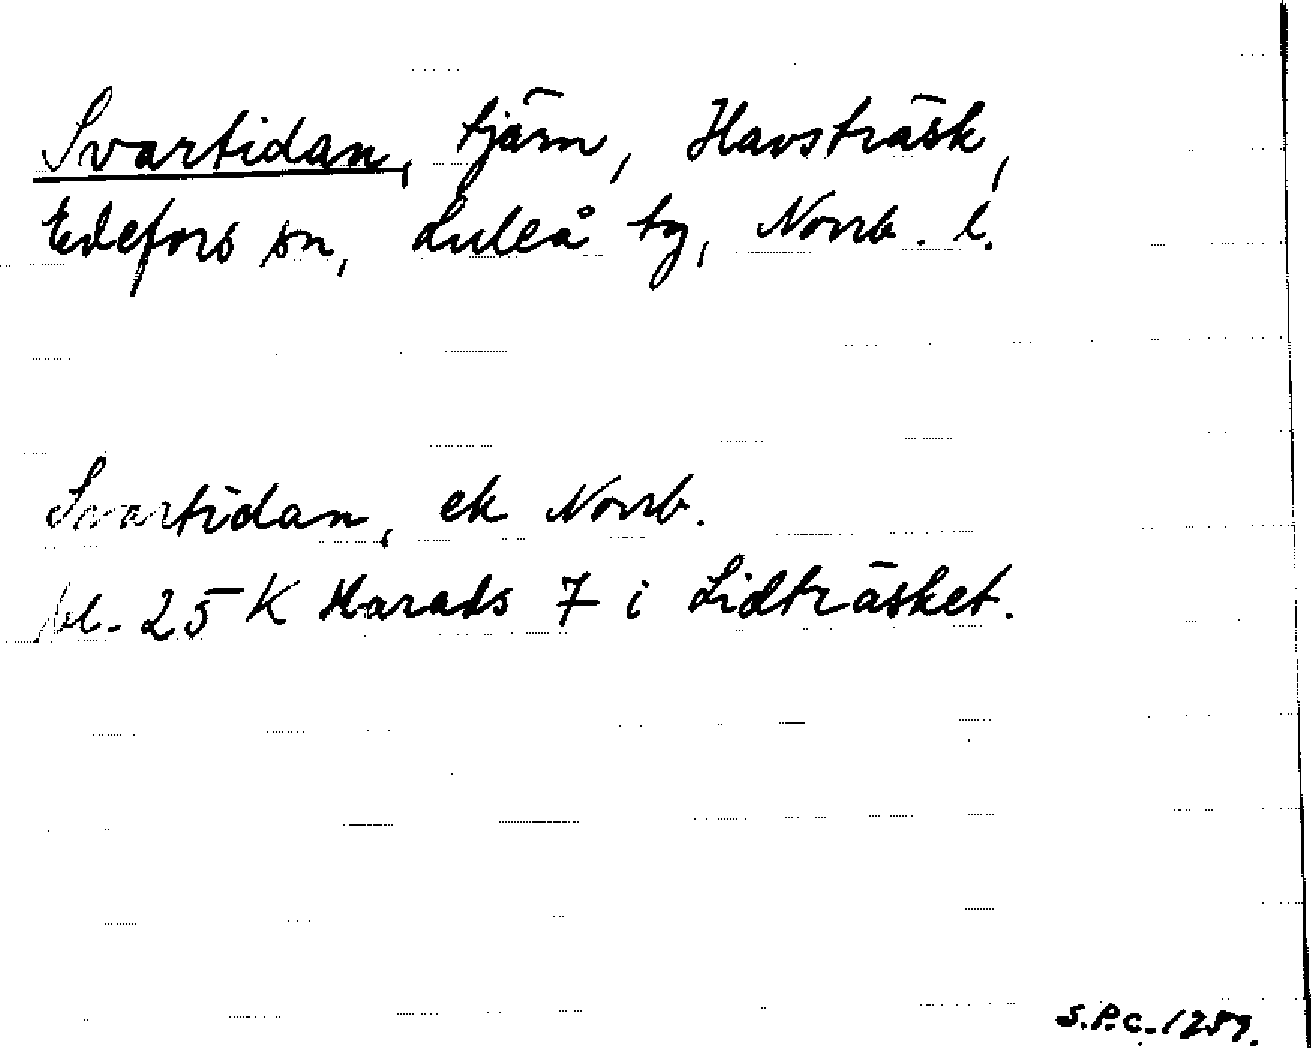 Svartidan, tjärn, Havsträsk,
Edefors sn, Luleå tg, Norrb. l.
Svartidan, ek Norrb.
bl. 25 K Harads 7 i Lidträsket.
S.P.C. 1257.